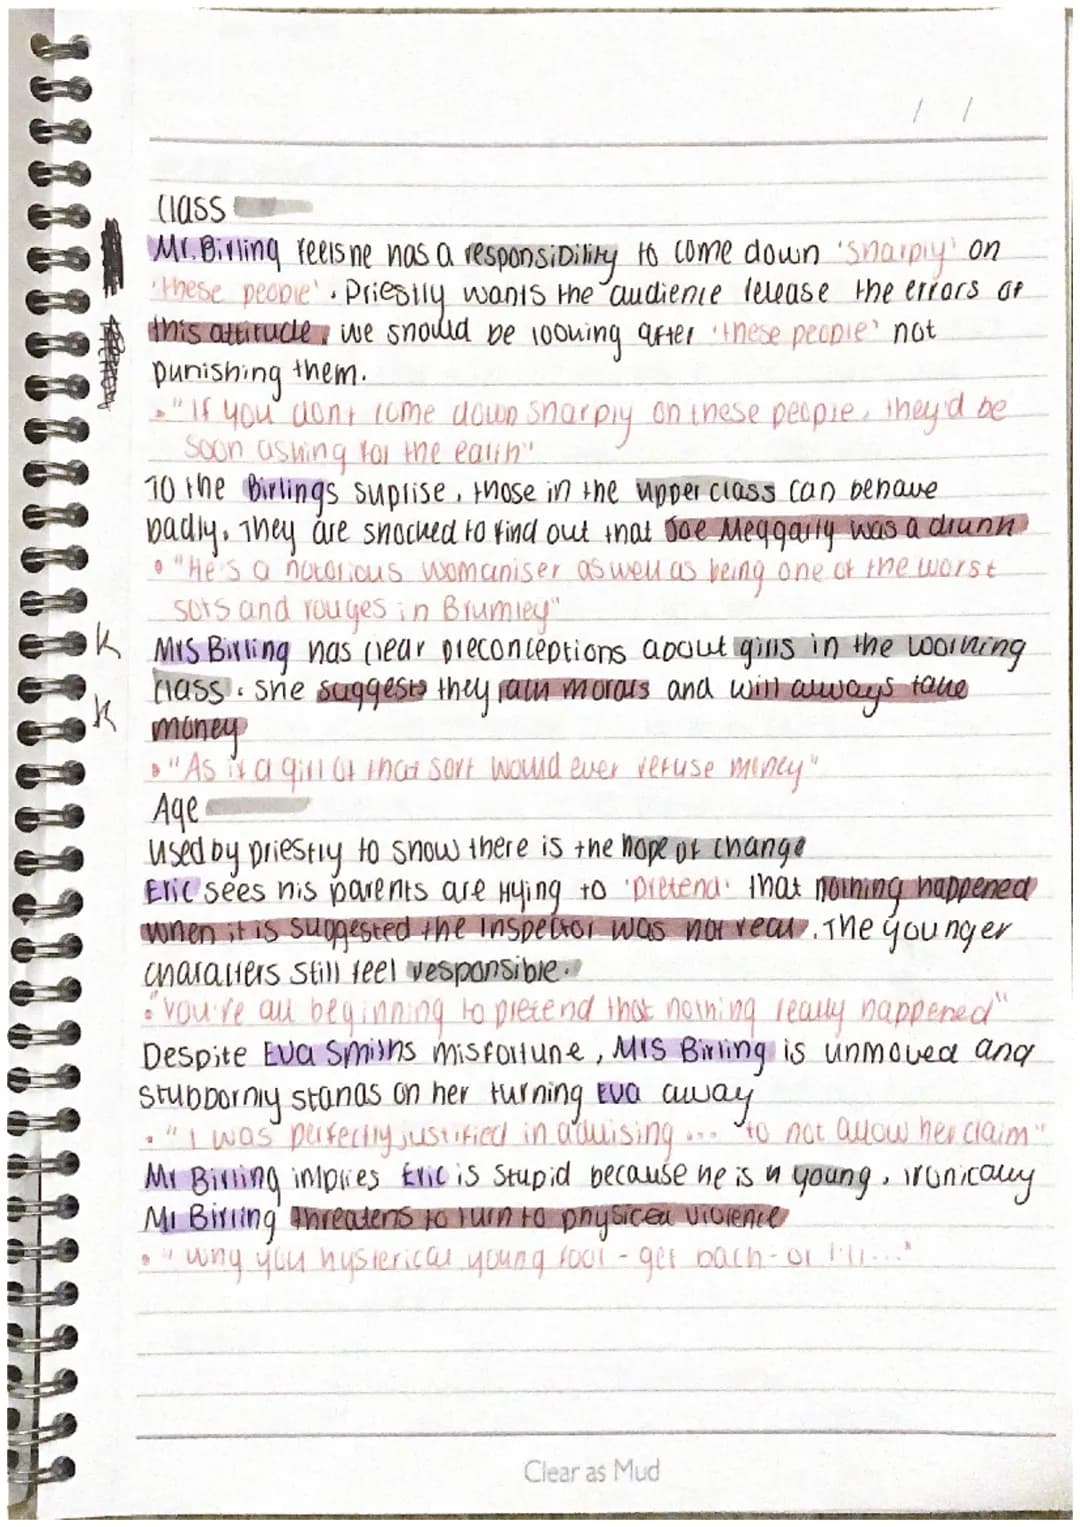 / /
Class
Mr. Birling feels he has a responsibility to come down 'sharply' on
'these people'. Priestly wants the audience release the errors of
this attitude, we should be looking after 'these people' not
punishing them.
• "If you dont come down sharply on these people, they'd be
soon asking for the earth"
To the Birlings suprise, those in the upper class can behave
badly. They are shocked to find out that Joe Meggarly was a drunk
• "He's a notorious womaniser aswell as being one of the worst
sots and rouges in Brumley"
K Mrs Birling has clear preconceptions about girls in the working
class. She suggests they lack morals and will always take
K
money
• "As if a girl of that sort would ever refuse money"
Age
Used by priestly to show there is the hope of change
Eric sees his parents are trying to 'pretend' that nothing happened
when it is suggested the Inspector was not real. The younger
characters still feel responsible.
• "You're all beginning to pretend that nothing really happened"
Despite Eva Smiths misfortune, Mrs Birling is unmoved and
stubbornly stands on her turning Eva away
• "I was perfectly justified in advising ... to not allow her claim"
Mr Birling implies Eric is stupid because he is young, ironically
Mr Birling threatens to turn to physical violence
• "Why you hysterical young fool - get back - or I'll...."
Clear as Mud